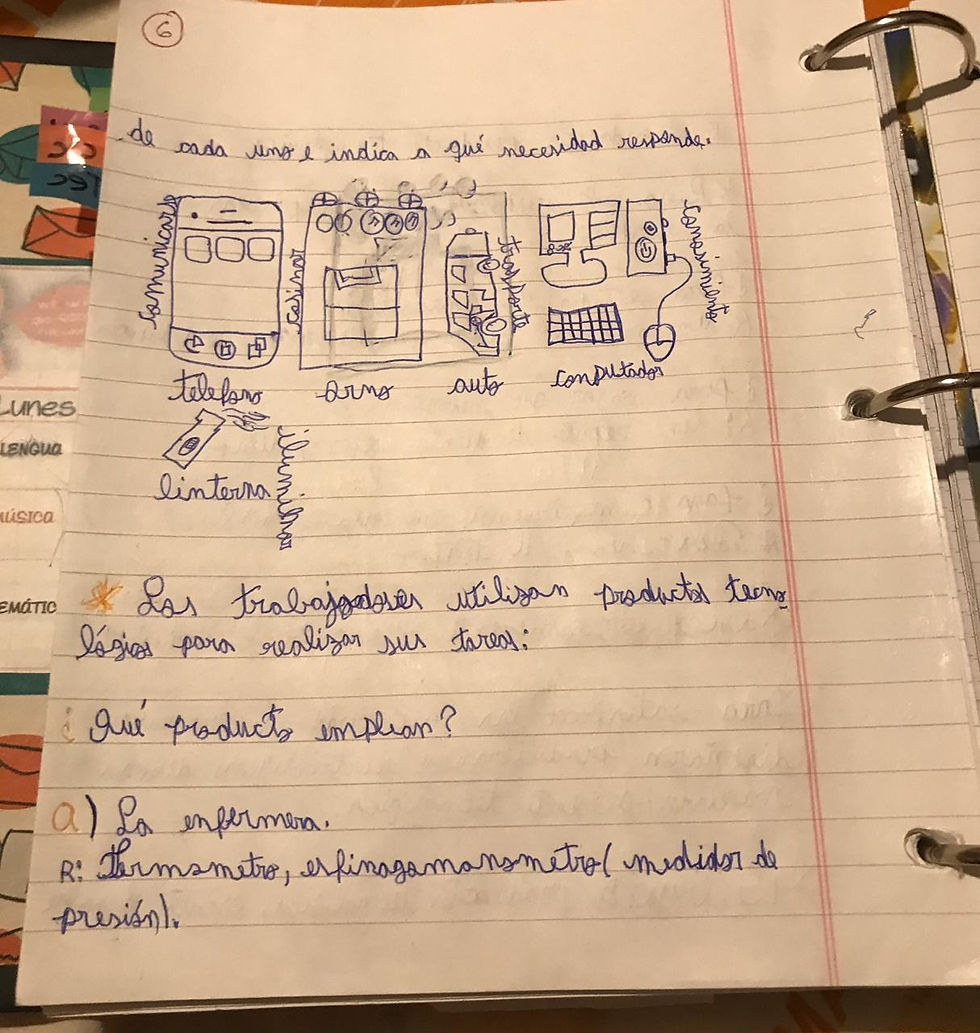 6
de cada uno e indica a qué necesidad responde.
comunicarse
cosinar
trasporte
conosimiento
telefono
orno
auto
computador
iluminar
linterna
Lunes
LENGUA
música
EMÁTIC
* Los trabajadores utilizan productos tecno
lógicos para realizar sus tareas:
¿Qué producto emplean?
a) La enfermera.
R: Termometro, esfinagomanometro( medidor de
presión).